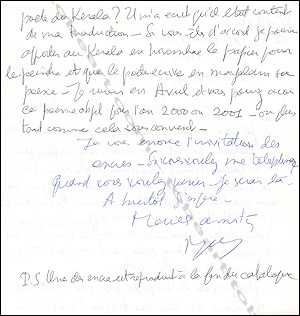 poète du Kerala ? Il m'a écrit qu'il était content
de ma traduction - Si vous êtes d'accord je pourrai
apporter au Kerala en novembre le papier pour
le peindre et que le poète écrive en malayalam son
poème - Je suis en Avril d'vous pourrez avoir
ce poème objet pour l'an 2000 ou 2001 - ou plus
tard comme cela vous convient -
Je vous envoie l'invitation des
encres - Si vous voulez me téléphoner
Quand vous voulez venir - je serai là -
A bientôt j'espère -
amitiés
P.S. Une des encres est reproduite à la fin du catalogue